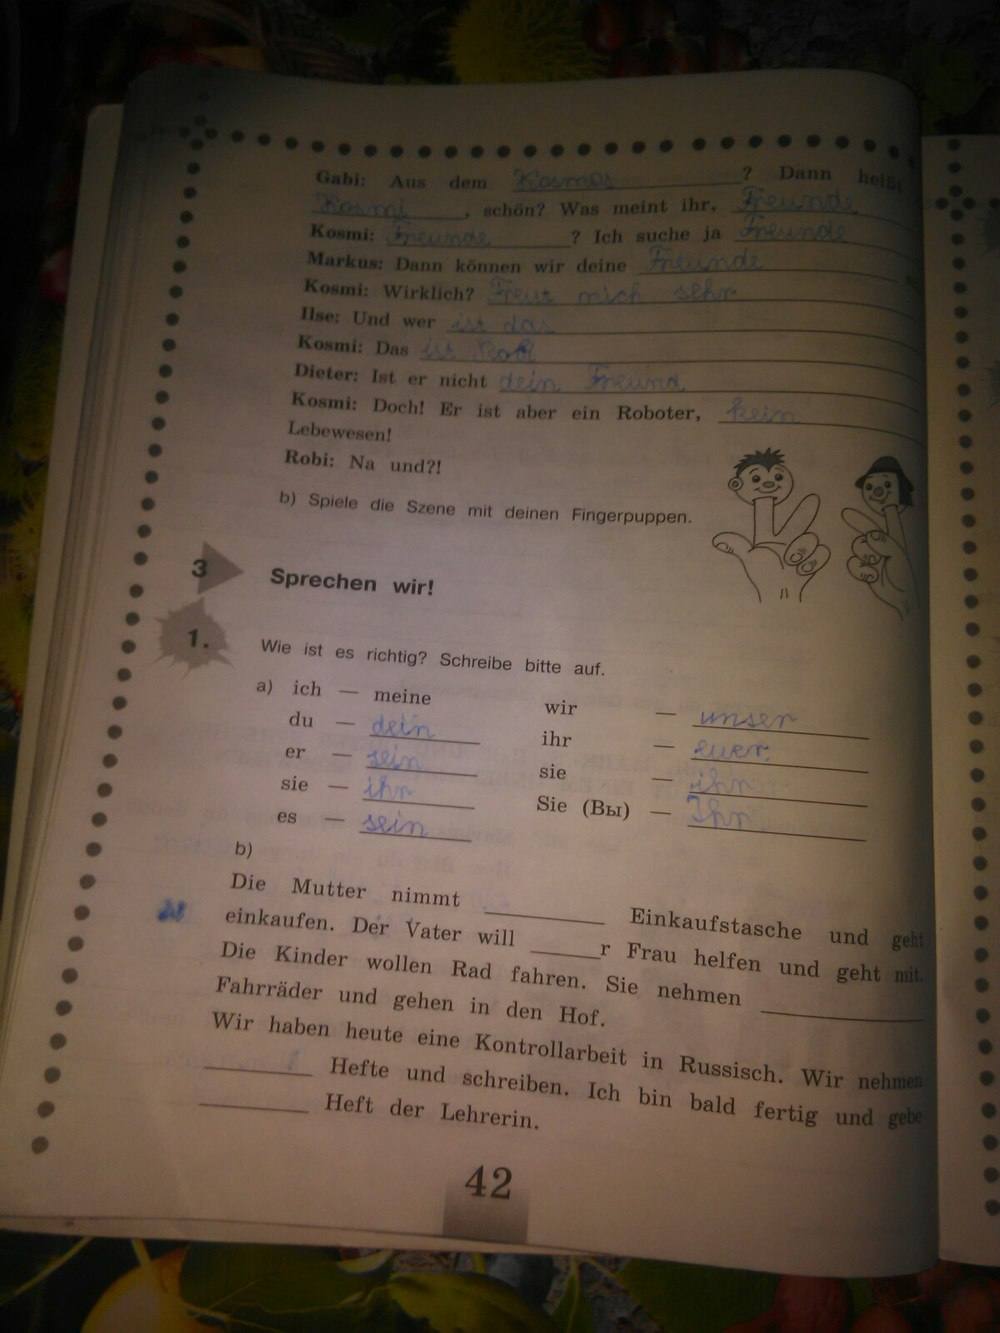 Gabi: Aus dem Kosmos ? Dann heißt
Kosmi , schön? Was meint ihr, Freunde
Kosmi: Freunde ? Ich suche ja Freunde
Markus: Dann können wir deine Freunde
Kosmi: Wirklich? Freut mich sehr
Ilse: Und wer ist das
Kosmi: Das ist Rob
Dieter: Ist er nicht dein Freund
Kosmi: Doch! Er ist aber ein Roboter, kein
Lebewesen!
Robi: Na und?!
b) Spiele die Szene mit deinen Fingerpuppen.
3 Sprechen wir!
1. Wie ist es richtig? Schreibe bitte auf.
a) ich — meine
du — dein
er — sein
sie — ihr
es — sein
wir — unser
ihr — euer
sie — ihr
Sie (Вы) — Ihr
b)
Die Mutter nimmt ________ Einkaufstasche und geht
einkaufen. Der Vater will _____r Frau helfen und geht mit.
Die Kinder wollen Rad fahren. Sie nehmen ________
Fahrräder und gehen in den Hof.
Wir haben heute eine Kontrollarbeit in Russisch. Wir nehmen
________ Hefte und schreiben. Ich bin bald fertig und gebe
________ Heft der Lehrerin.
42